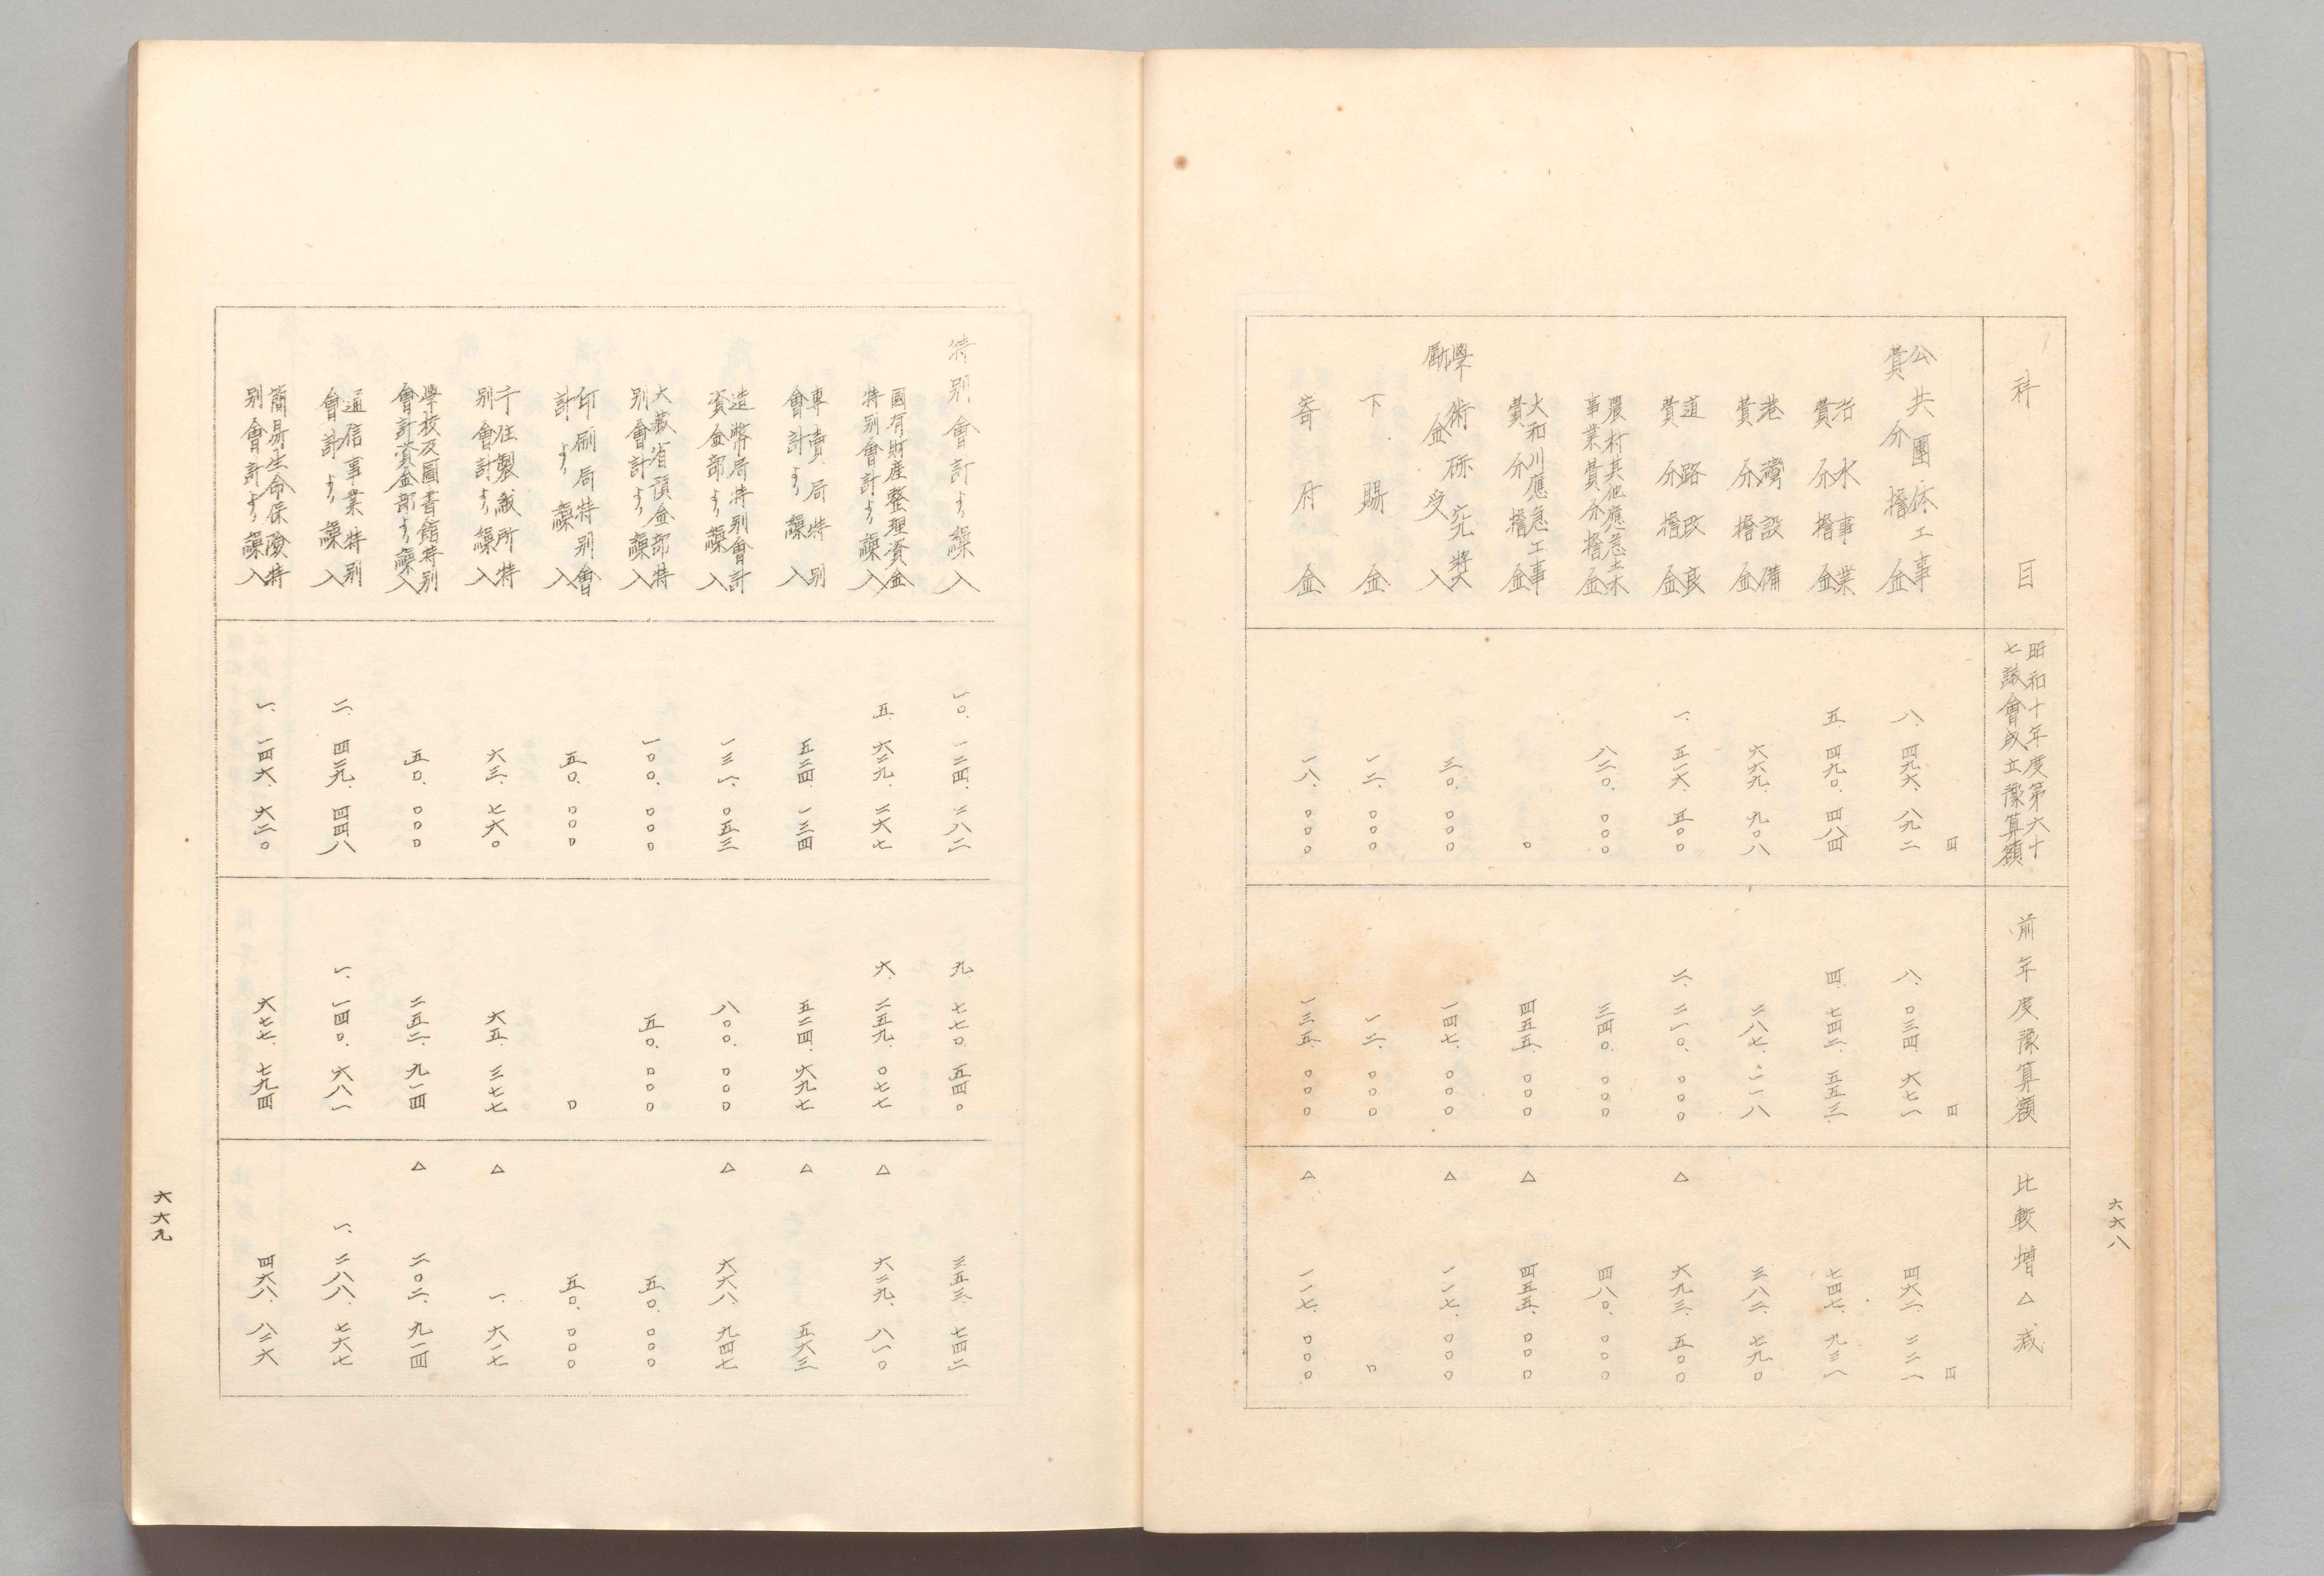 六六八
科目
昭和十年度第六十
七議會成立豫算額
前年度豫算額
比較增△減
公共團体工事
費分擔金
円
八、四九六、八九二
円
八、〇三四、六七一
円
四六二、二二一
治水事業
費分擔金
五、四九〇、四八四
四、七四二、五五三
七四七、九三一
港灣設備
費分擔金
六六九、九〇八
二八七、一一八
三八二、七九〇
道路改良
費分擔金
一、五一六、五〇〇
二、二一〇、〇〇〇
△六九三、五〇〇
農村其他應急土木
事業費分擔金
八二〇、〇〇〇
三四〇、〇〇〇
四八〇、〇〇〇
大和川應急工事
費分擔金
〇
四五五、〇〇〇
△四五五、〇〇〇
學術硏究奬
勵金受入
三〇、〇〇〇
一四七、〇〇〇
△一一七、〇〇〇
下賜金
一二、〇〇〇
一二、〇〇〇
〇
寄府金
一八、〇〇〇
一三五、〇〇〇
△一一七、〇〇〇
特別會計ヨリ繰入
一〇、一二四、二八二
九、七七〇、五四〇
三五三、七四二
國有財産整理資金
特別會計ヨリ繰入
五、六二九、二六七
六、二五九、〇七七
△六二九、八一〇
專賣局特別
會計ヨリ繰入
五二四、一三四
五二四、六九七
△五六三
造幣局特別會計
資金部ヨリ繰入
一三一、〇五三
八〇〇、〇〇〇
△六六八、九四七
大藏省預金部特
別會計ヨリ繰入
一〇〇、〇〇〇
五〇、〇〇〇
五〇、〇〇〇
印刷局特別會
計ヨリ繰入
五〇、〇〇〇
〇
五〇、〇〇〇
千住製絨所特
別會計ヨリ繰入
六三、七六〇
六五、三七七
△一、六一七
學校及圖書館特別
會計資金部ヨリ繰入
五〇、〇〇〇
二五二、九一四
△二〇二、九一四
通信事業特別
會計ヨリ繰入
二、四二九、四四八
一、一四〇、六八一
一、二八八、七六七
簡易生命保險特
別會計ヨリ繰入
一、一四六、六二〇
六七七、七九四
四六八、八二六
六六九